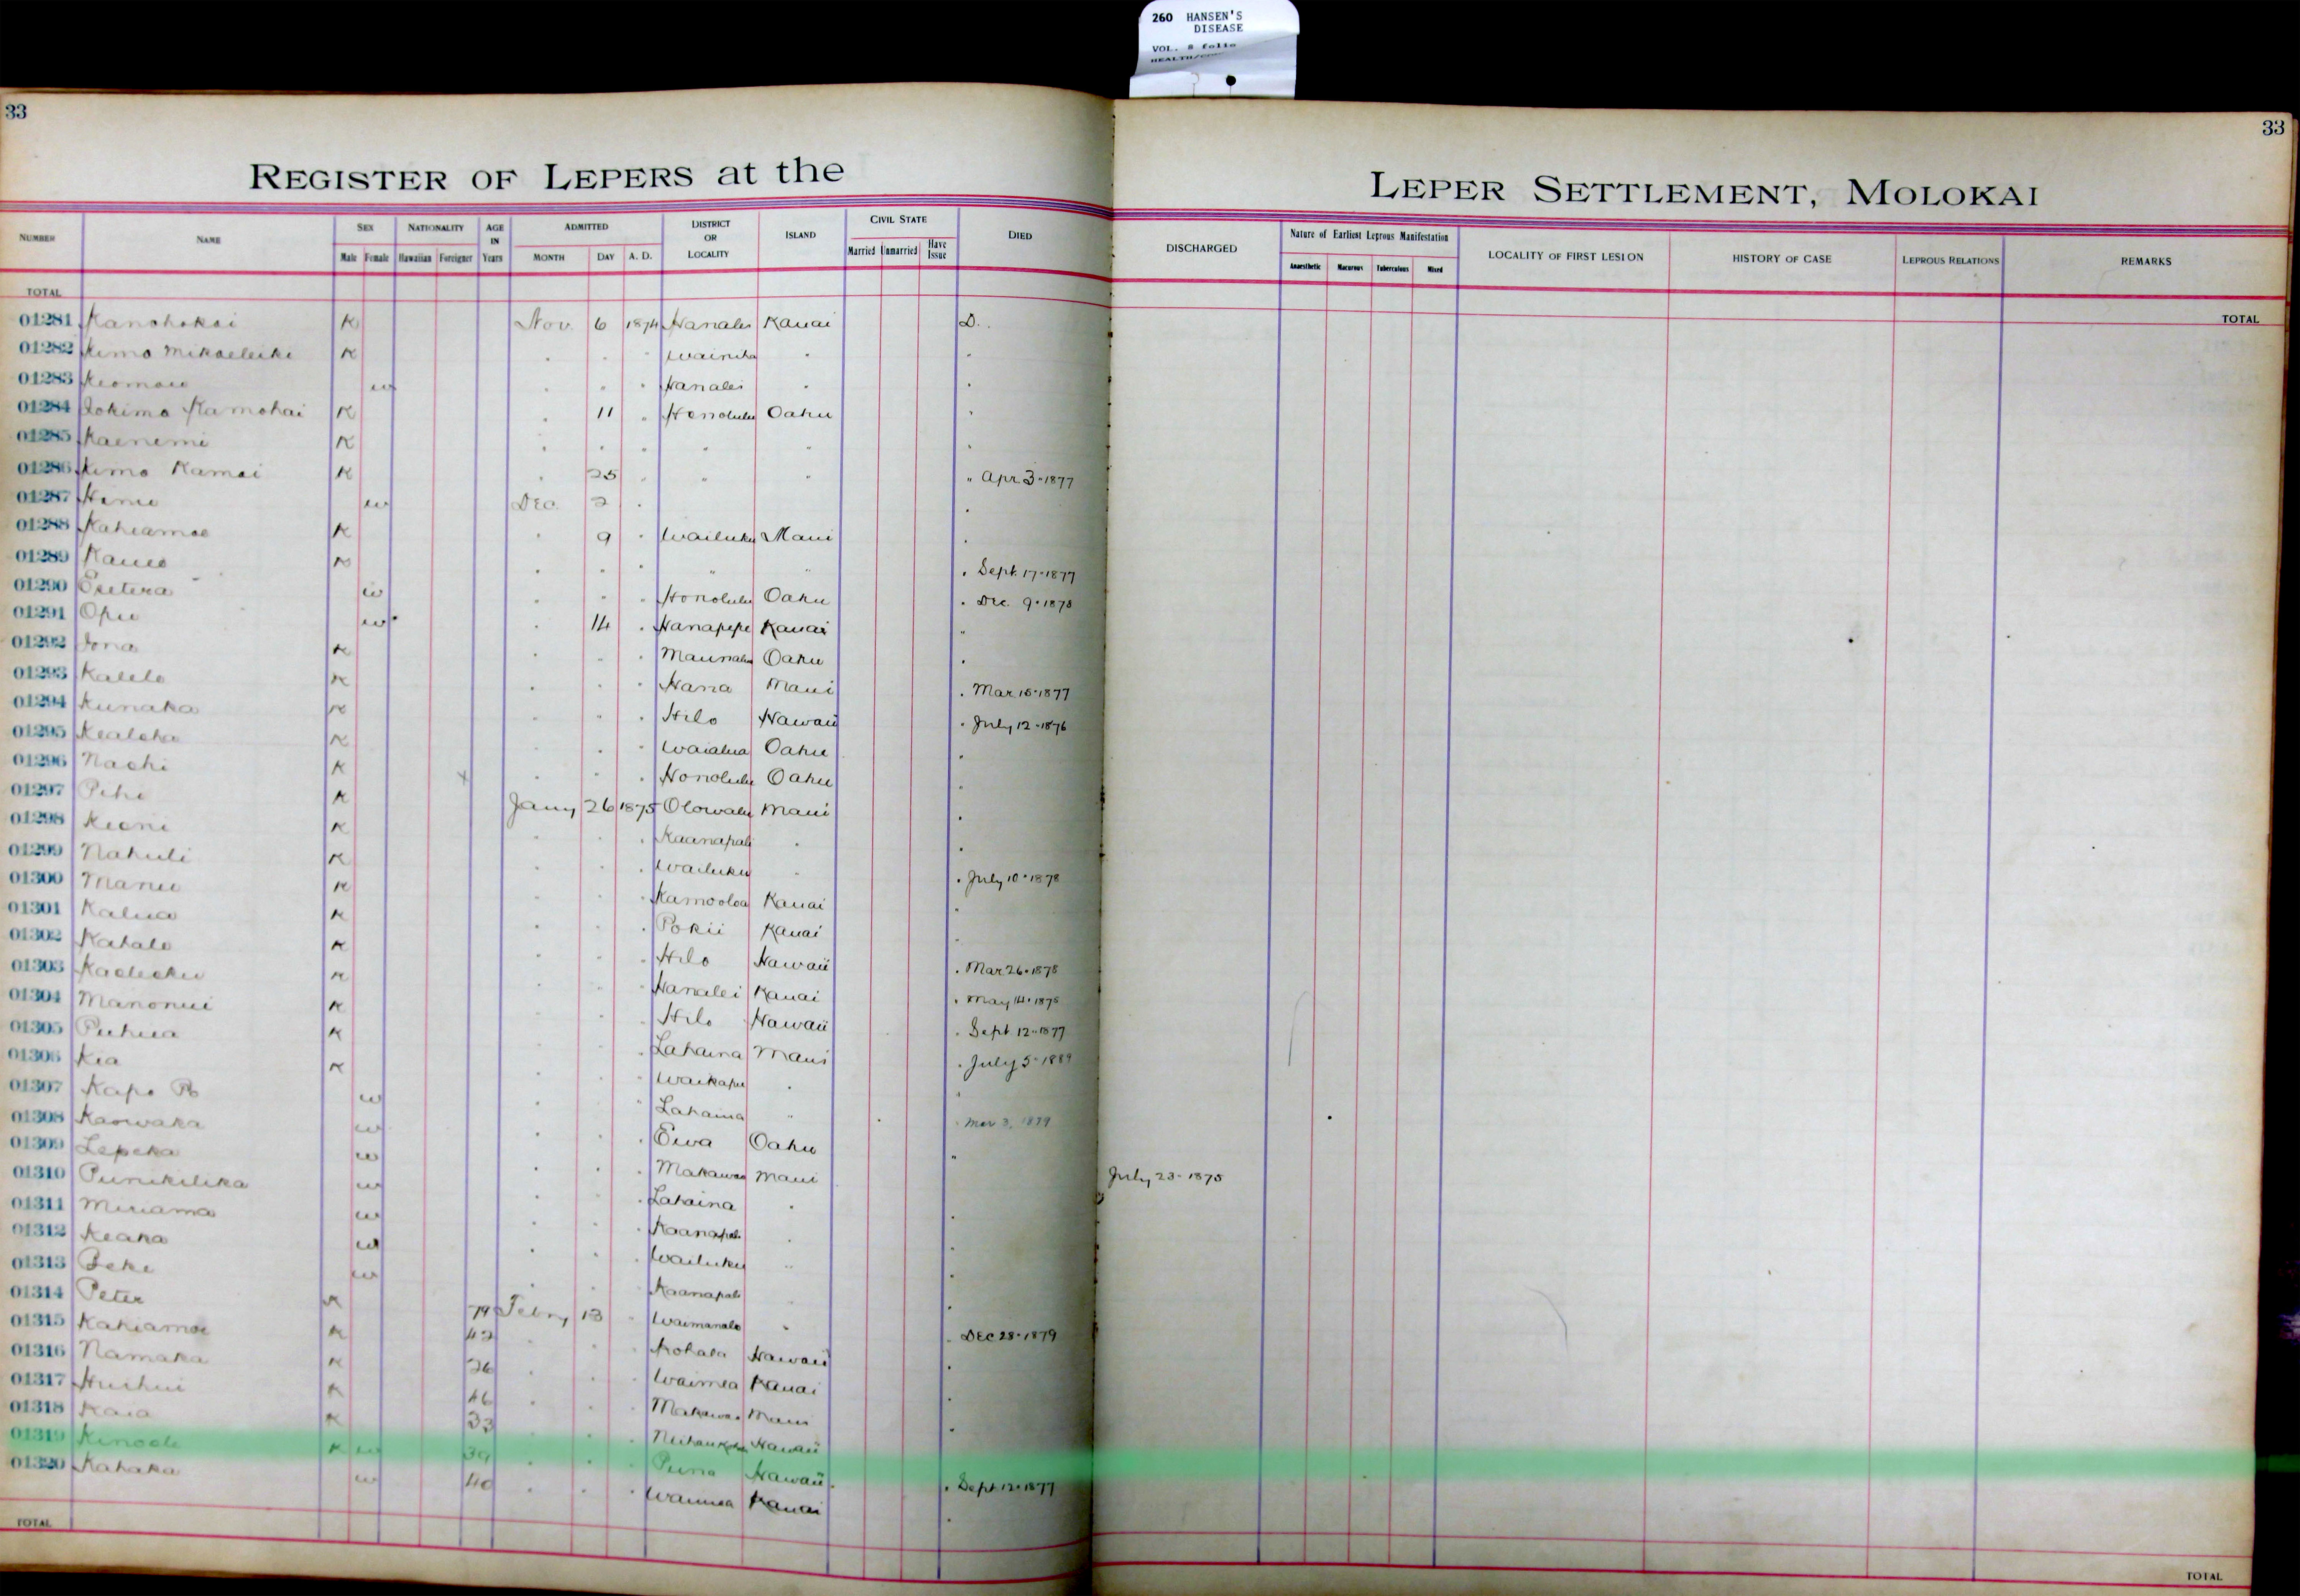 260 HANSEN'S
DISEASE
VOL. 8 folio
33
33
REGISTER OF LEPERS at the LEPER SETTLEMENT, MOLOKAI
NUMBER NAME SEX NATIONALITY AGE IN Years ADMITTED DISTRICT OR LOCALITY ISLAND CIVIL STATE DIED DISCHARGED Nature of Earliest Leprous Manifestation LOCALITY OF FIRST LESION HISTORY OF CASE LEPROUS RELATIONS REMARKS
Male Female Hawaiian Foreigner MONTH DAY A. D. Married Unmarried Have Issue Anaesthetic Macurous Tuberculous Mixed
TOTAL TOTAL
01281 Kanohokai K Nov. 6 1874 Hanalei Kauai D.
01282 Kimo Mikaeleiki K " " " Wainiha " "
01283 Keomaiu w " " " Hanalei " "
01284 Iokimo Kamohai K " 11 " Honolulu Oahu "
01285 Kaenemi K " " " " " "
01286 Kimo Kamai K " 25 " " " " Apr 3-1877
01287 w Dec. 2 " "
01288 Kahiamoe K " 9 " Wailuku Maui "
01289 Kaueo K " " " " " " Sept. 17-1877
01290 w " " " Honolulu Oahu " Dec. 9-1878
01291 Opu w " 14 " Hanapepe Kauai "
01292 Iona K " " " Maunalua Oahu "
01293 Kalelo K " " " Hana Maui " Mar 15-1877
01294 Kunaka K " " " Hilo Hawaii " July 12-1876
01295 Kealoha K " " " Waialua Oahu "
01296 Naohi K x " " " Honolulu Oahu "
01297 Pihi K Jany 26 1875 Olowalu Maui "
01298 Keoni K " " " Kaanapali " "
01299 Nahuli K " " " Wailuku " " July 10-1878
01300 Manu K " " " Kamooloa Kauai "
01301 Kalua K " " " Pokii Kauai "
01302 Kahalo K " " " Hilo Hawaii " Mar 26-1878
01303 K " " " Hanalei Kauai " May 14-1875
01304 Manonui K " " " Hilo Hawaii " Sept 12-1877
01305 Puhua K " " " Lahaina Maui " July 5-1889
01306 Kia K " " " Waikapu " "
01307 Kapo w " " " Lahaina " " Mar 3, 1879
01308 Kaowaka w " " " Ewa Oahu "
01309 Lepeka w " " " Makawao Maui July 23-1875
01310 Punikilika w " " " Lahaina " "
01311 Miriama w " " " Kaanapali " "
01312 Keaka w " " " Wailuku " "
01313 Beke w " " " Kaanapali " "
01314 Peter K 79 Febry 13 " Waimanalo " " DEC 28-1879
01315 Kahiamoe K 42 " " " Kohala Hawaii "
01316 Namaka K 26 " " " Waimea Kauai "
01317 Huihui K 46 " " " Makawao Maui "
01318 Kaia K 33 " " " Hawaii
01319 Kinoole K w 39 " " " Puna Hawaii " Sept 12-1877
01320 Kahaka w 40 " " " Waimea Kauai "
TOTAL TOTAL